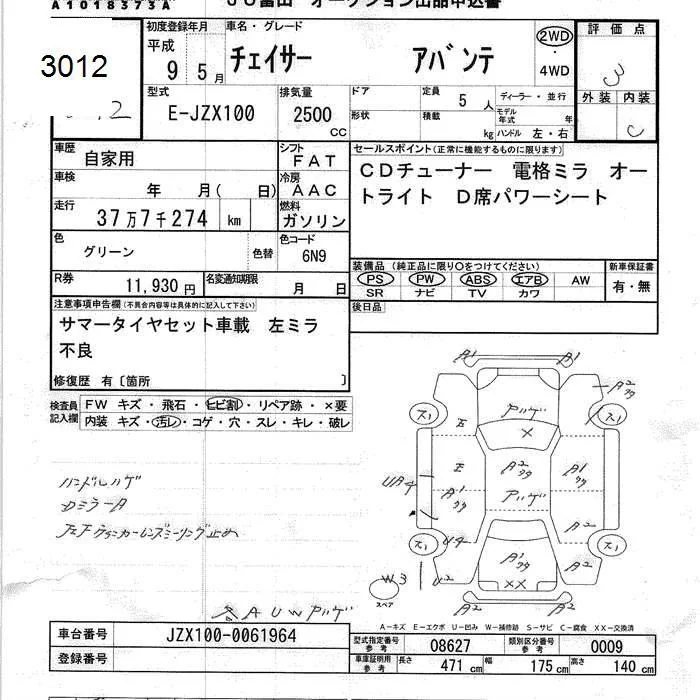 A1018373A
JU富山 オークション出品申込書
3012
初度登録年月 車名・グレード 評価点
平成 9 5月 チェイサー アバンテ 2WD・4WD 3
型式 排気量 ドア 定員 ディーラー・並行 外装 内装
E-JZX100 2500 CC 5人 C
形状 積載 kg モデル年式 年 ハンドル 左・右
車歴 自家用 シフト FAT
車検 年 月( 日) 冷房 AAC
走行 37万7千274 km 燃料 ガソリン
色 グリーン 色替 色コード 6N9
R券 11,930円 名変通知期限 月 日
セールスポイント(正常に機能するものに限ります)
CDチューナー 電格ミラ オー
トライト D席パワーシート
装備品(純正品に限り〇をつけてください) 新車保証書
PS PW ABS エアB AW 有・無
SR ナビ TV カワ
後日品
注意事項申告欄(不具合内容等は具体的に記入して下さい)
サマータイヤセット車載 左ミラ
不良
修復歴 有〔箇所 〕
検査員 FW キズ・飛石・ヒビ割・リペア跡・×要
記入欄 内装 キズ・汚レ・コゲ・穴・スレ・キレ・破レ
ハンドルハゲ
DミラーA
A1 B1
A2
ス1 ス1
ハゲ
E
×
E A2 A1
UA4 A1 ハゲ
A2
ス1 U4 ス1
A1
W3 U2 ×× A2
スペア
A2 A2
各AUWアリハゲ
A－キズ E－エクボ U－凹み W－補修跡 S－サビ C－腐食 XX－交換済
車台番号 JZX100-0061964
登録番号
型式指定番号 参考 08627 類別区分番号 参考 0009
車庫証明用 参考 長さ 471cm 幅 175cm 高さ 140cm